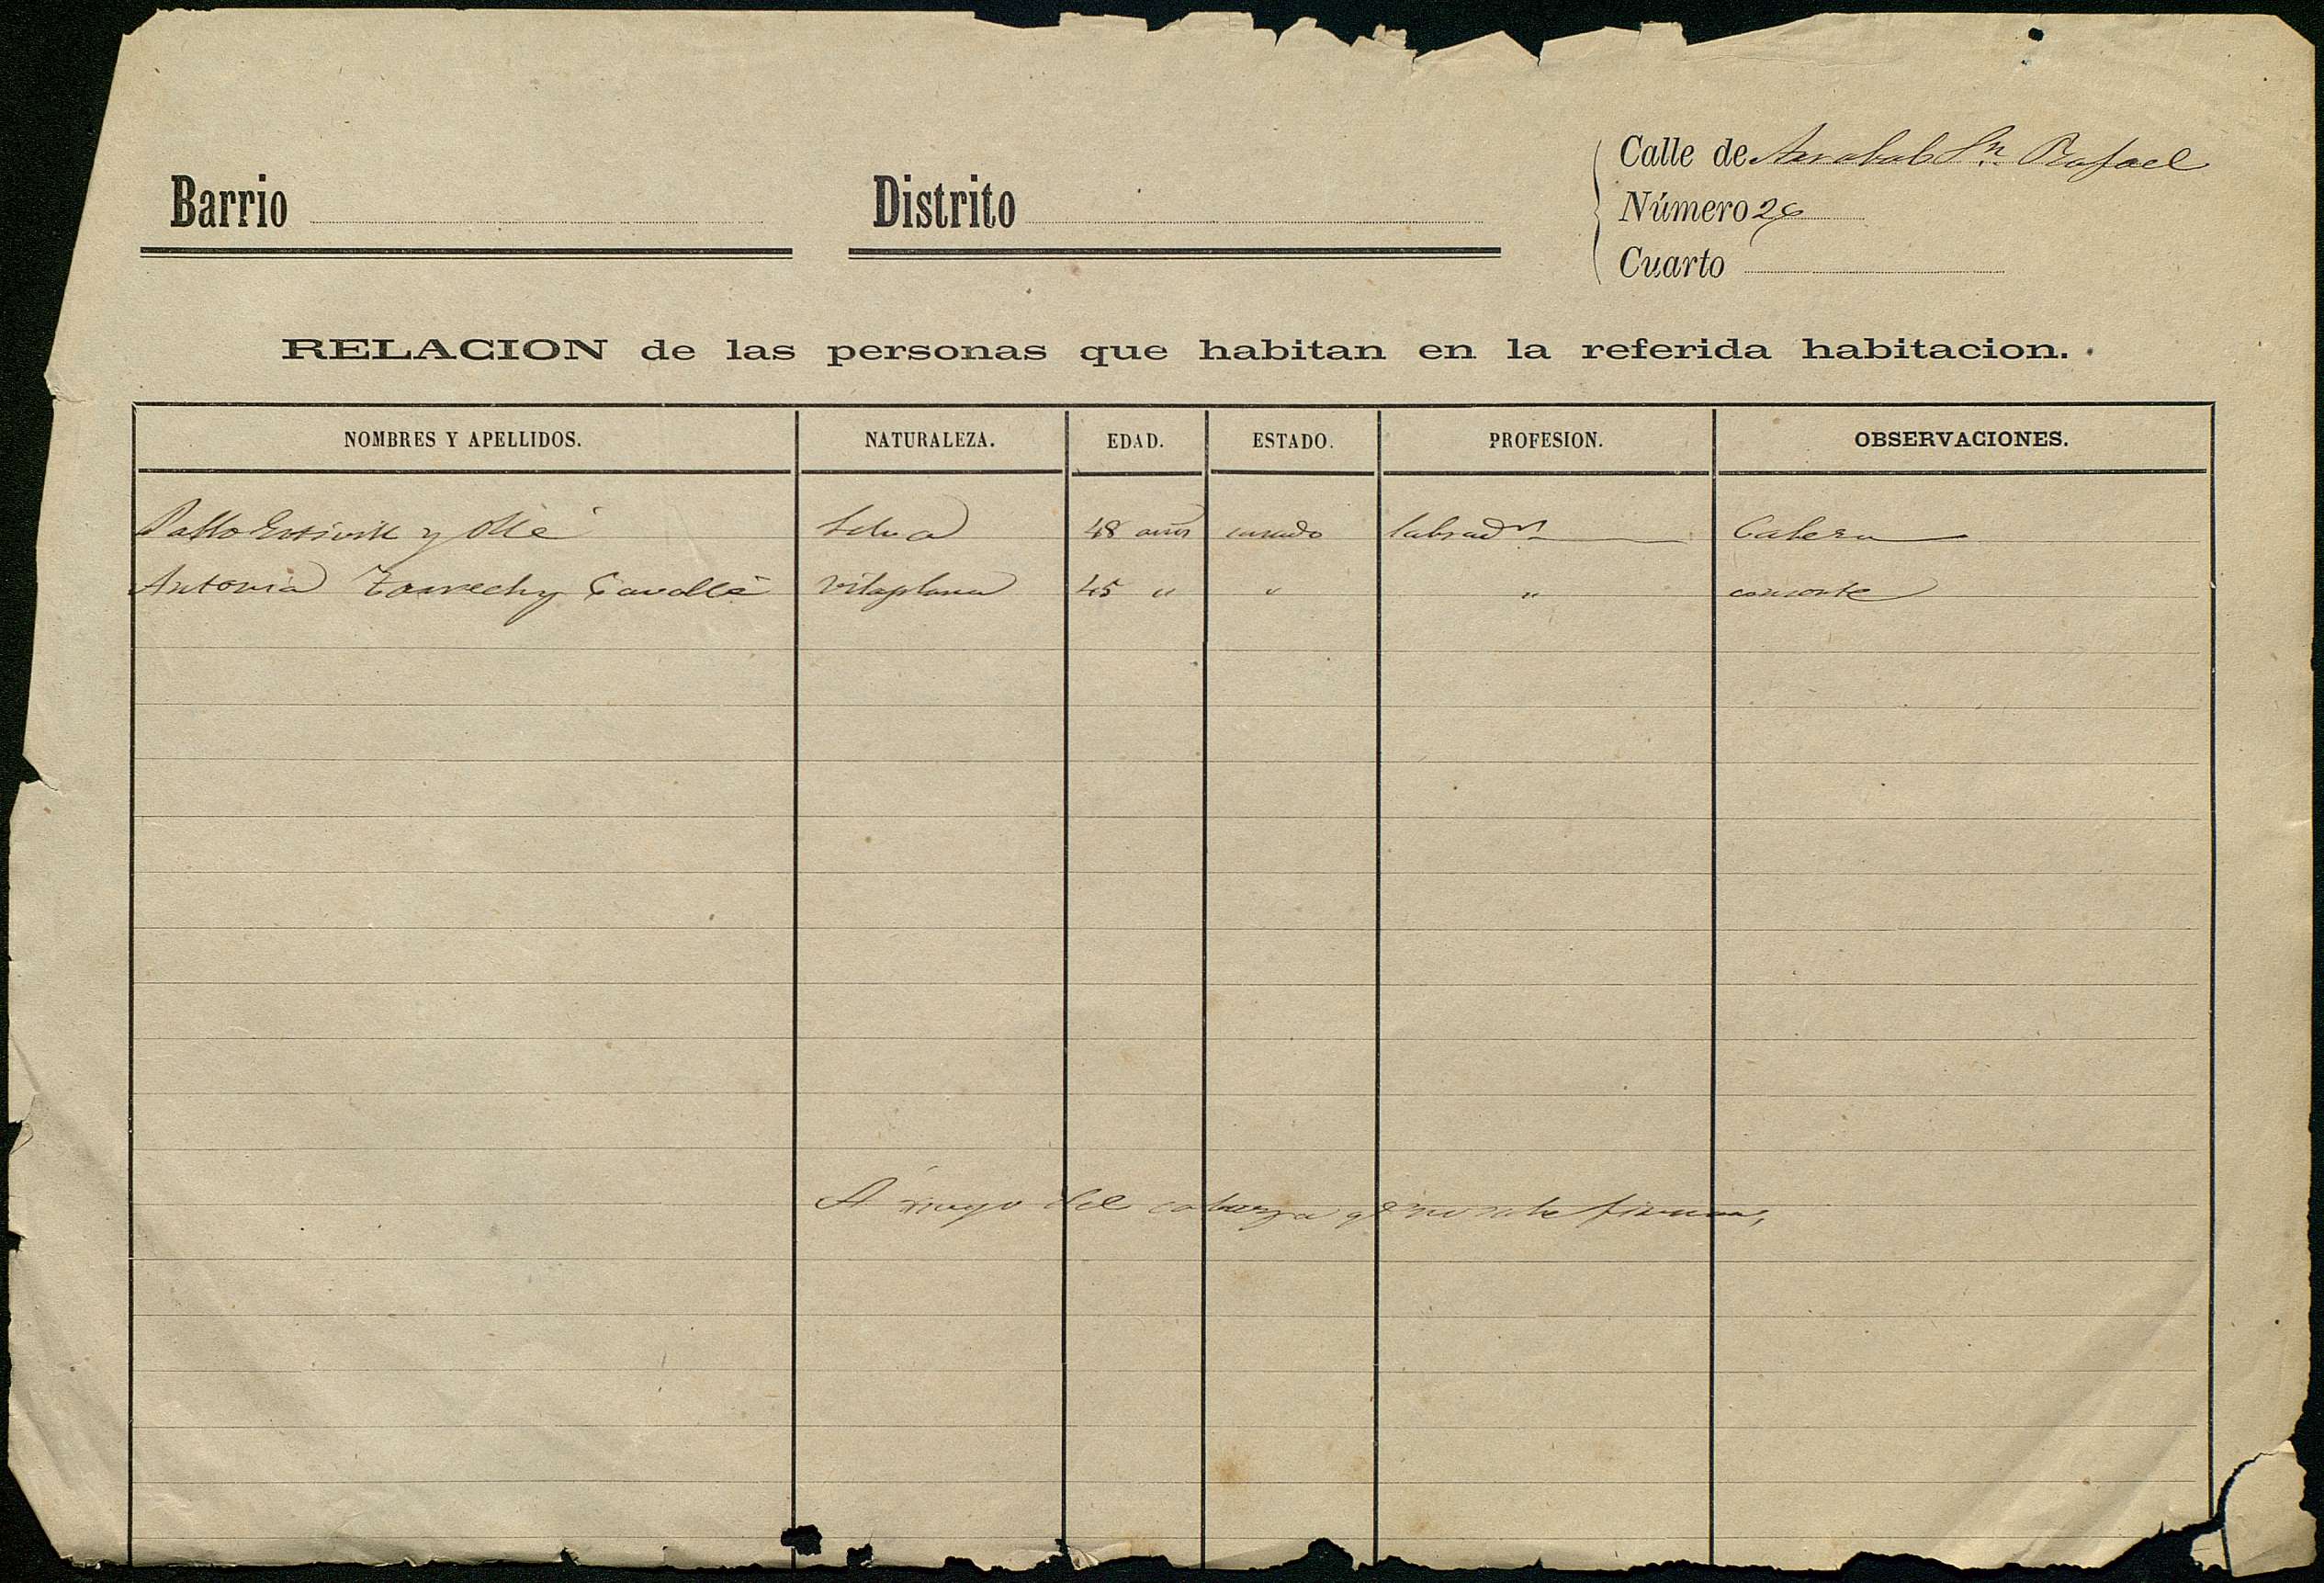 Calle de Arrabal Sn. Rafael
Barrio Distrito Número 26
Cuarto
RELACION de las personas que habitan en la referida habitacion.
NOMBRES Y APELLIDOS. NATURALEZA. EDAD. ESTADO. PROFESION. OBSERVACIONES.
Pablo y Ollé Selva 48 años casado labrador Cabeza
Antonia y Cavallé Vilaplana 45 " " " consorte
A ruego del cabeza qe no sabe firmar,